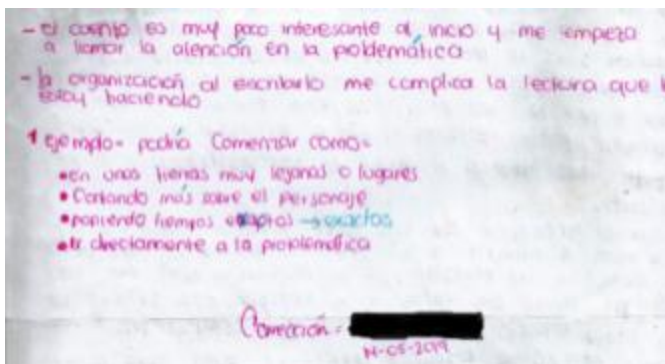 - el cuento es muy poco interesante al inicio y me empieza
a llamar la atención en la problemática
- la organización al escribirlo me complica la lectura que
estoy haciendo
1 ejemplo= podría Comenzar como=
•en unas tierras muy lejanas o lugares
•Contando más sobre el personaje
•poniendo tiempos → exactos
•Ir directamente a la problemática
Corrección=
-05-2019